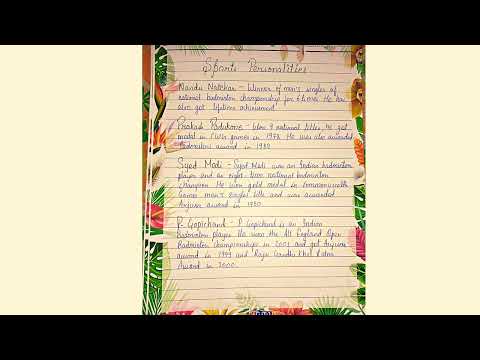 Sports Personalities
Nandu Natekar - Winner of men's singles of
national badminton championship for 6 times. He has
also got lifetime achievement.
Prakash Padukone - Won 9 national titles, he got
medal in CWG games in 1978. He was also awarded
Padmashri award in 1982.
Syed Modi - Syed Modi was an Indian badminton
player and an eight time national badminton
champion. He won gold medal in commonwealth
Games men's singles title and was awarded
Arjuna award in 1980.
P. Gopichand - P Gopichand is an Indian
Badminton player. He won the All England Open
Badminton Championships in 2001 and got Arjuna
award in 1999 and Rajiv Gandhi Khel Ratna
Award in 2000.